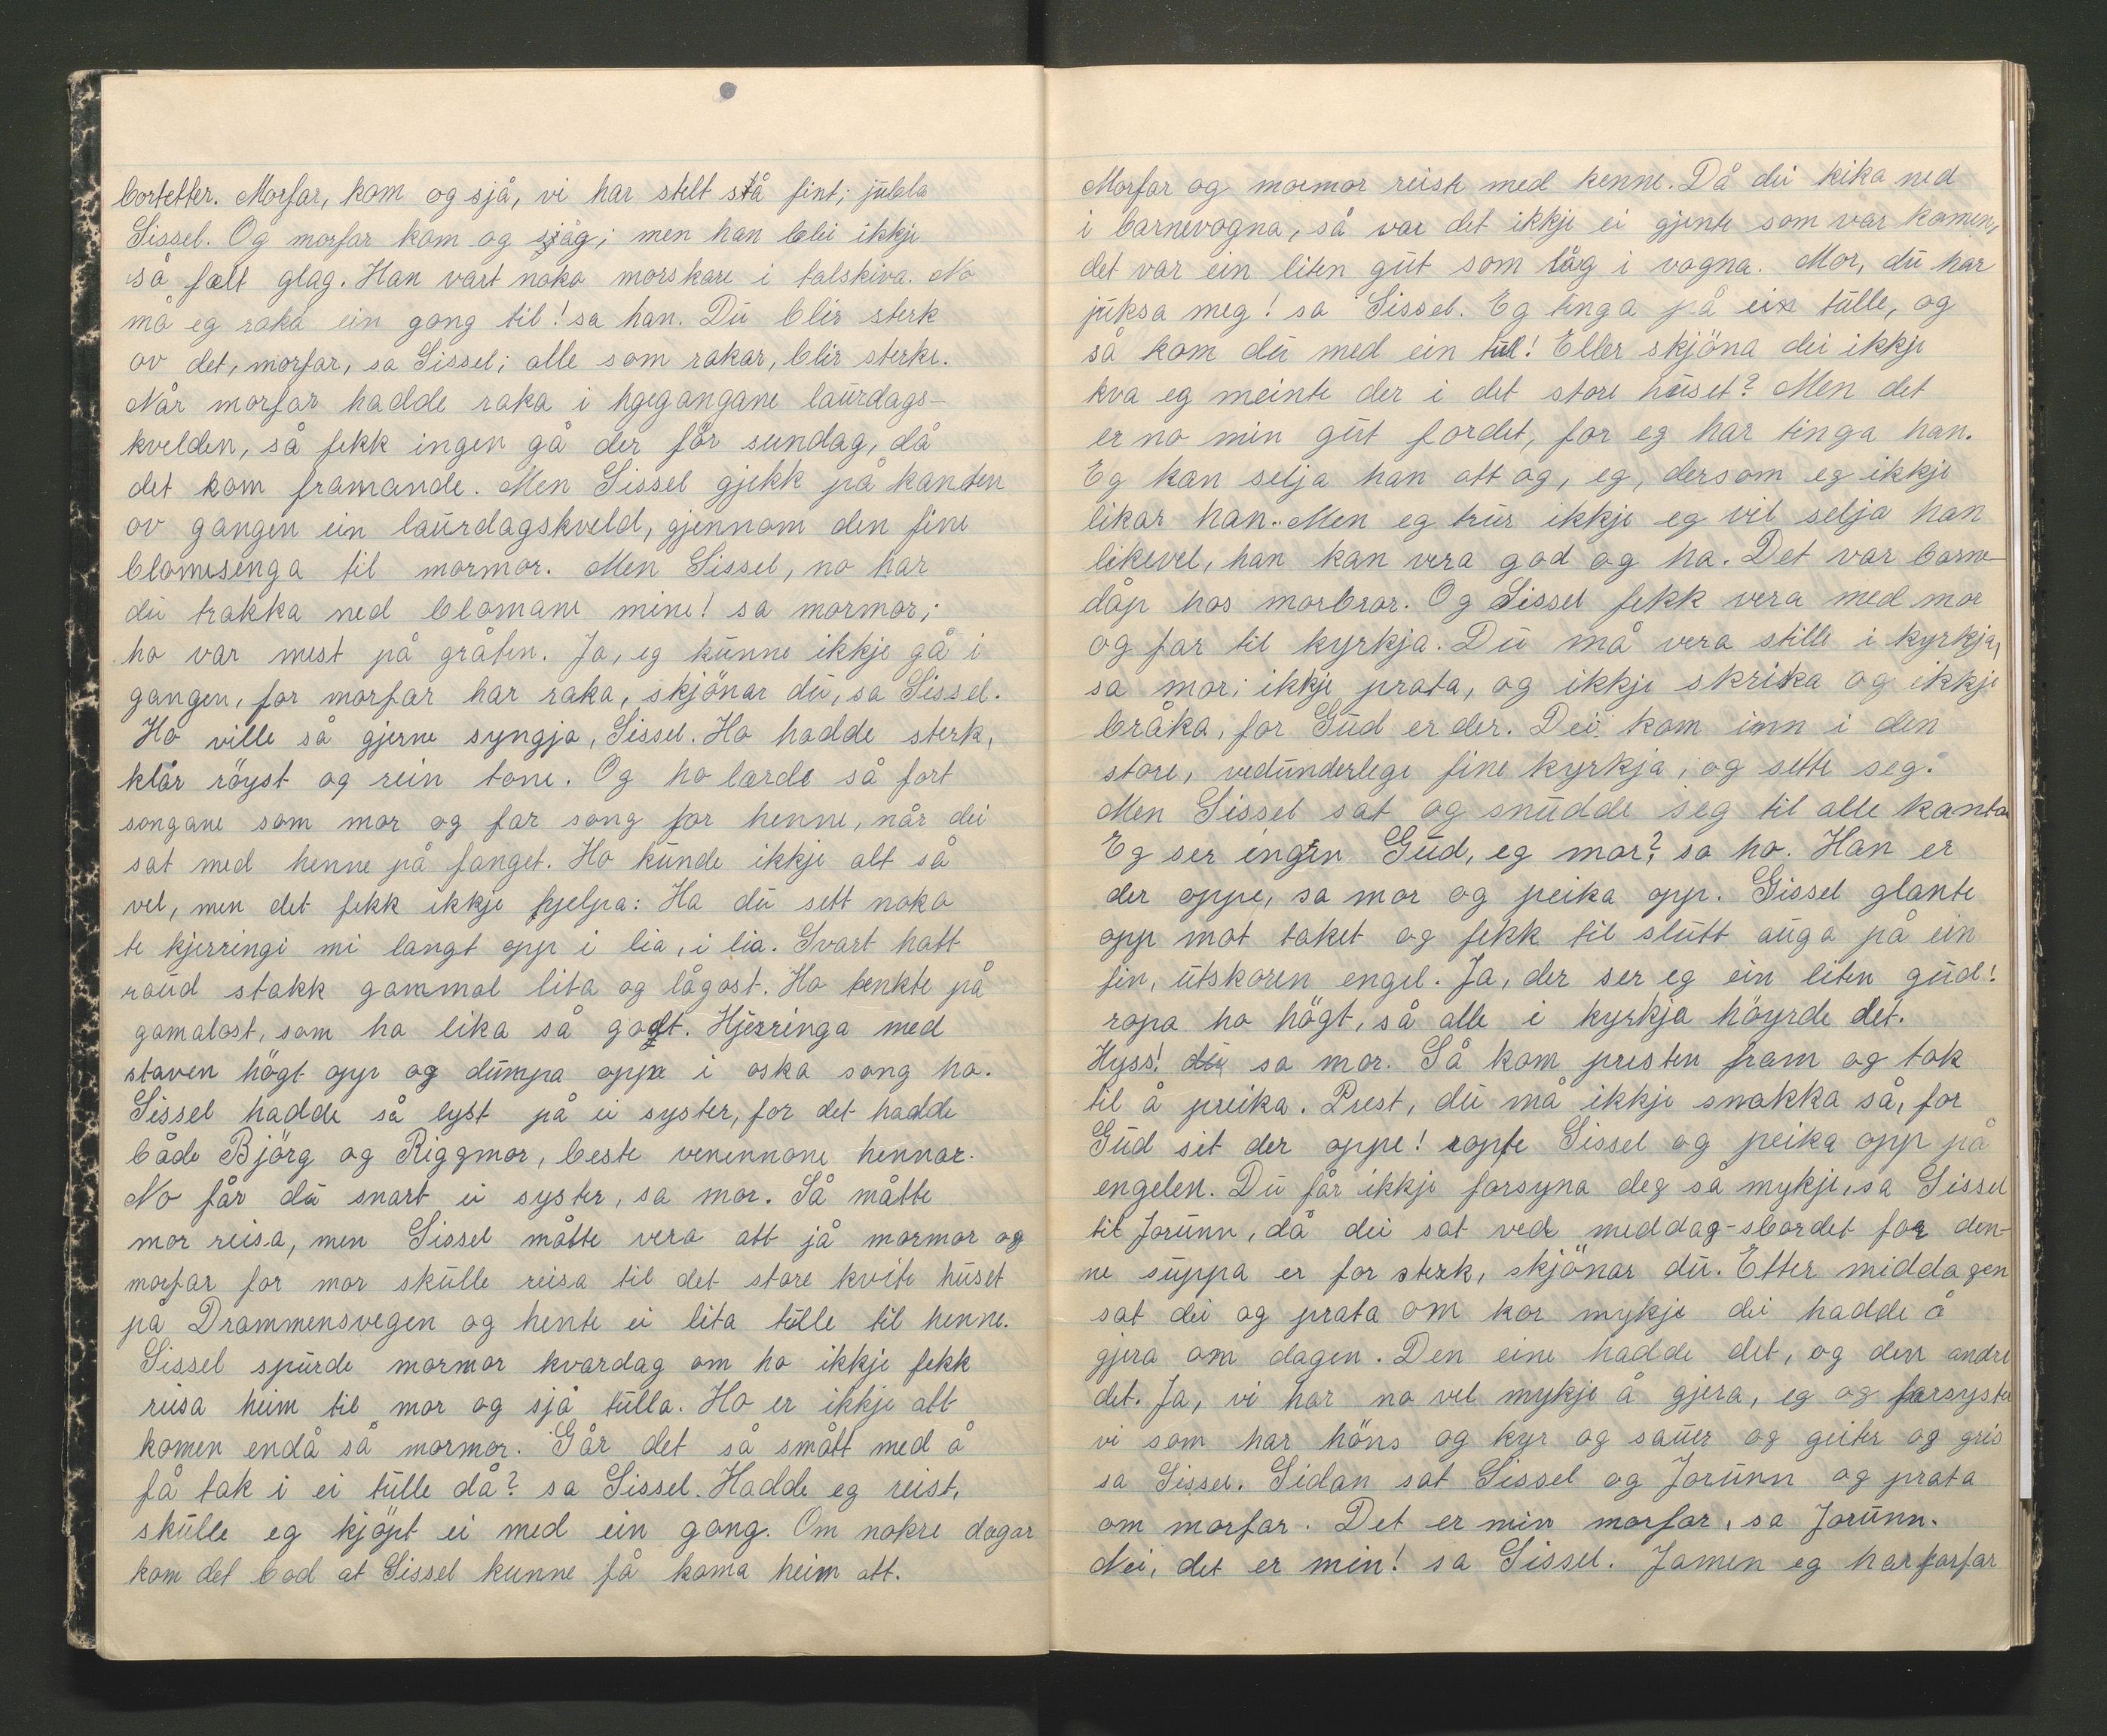 bortetter. Morfar, kom og sjå, vi har stelt så fint; jubla
Sissel. Og morfar kom og sjåg; men han blei ikkje
så fælt glag. Han vart noko morskare i talskiva. No
må eg raka ein gong til! sa han. Du blir sterk
ov det, morfar, sa Sissel; alle som rakar, blir sterke.
Når morfar hadde raka i hgegangane laurdags-
kvelden, så fekk ingen gå der för sundag, då
det kom framande. Men Sissel gjekk på kanten
ov gangen ein laurdagskveld, gjennom den fine
blomesenga til mormor. Men Sissel, no har
du trakka ned blomane mine! sa mormor;
ho var mest på gråten. Ja, eg kunne ikkje gå i
gangen, for morfar har raka, skjönar du, sa Sissel.
Ho ville så gjerne syngja, Sissel. Ho hadde sterk,
klår röyst og rein tone. Og ho lærde så fort
songane som mor og far song for henne, når dei
sat med henne på fanget. Ho kunde ikkje alt så
vel, men det fekk ikkje hjelpa: Ha du sett noko
te kjerringi mi langt opp i lia, i lia. Svart hatt
raud stakk gammal lita og lågost. Ho tenkte på
gamalost, som ho lika så godt. Hjerringa med
staven högt opp og dumpa oppe i oska song ho.
Sissel hadde så lyst på ei syster, for det hadde
både Björg og Riggmor, beste venennone hennar.
No får du snart ei syster, sa mor. Så måtte
mor reisa, men Sissel måtte vera att jå mormor og
morfar for mor skulle reisa til det store kvite huset
på Drammensvegen og hente ei lita tulle til henne.
Sissel spurde mormor kvardag om ho ikkje fekk
reisa heim til mor og sjå tulla. Ho er ikkje att
komen endå så mormor. Går det så smått med å
få tak i ei tulle då? sa Sissel. Hadde eg reist,
skulle eg kjöpt ei med ein gong. Om nokre dagar
kom det bod at Sissel kunne få koma heim att.
Morfar og mormor reiste med henne. Då dei kika ned
i barnevogna, så var det ikkje ei gjente som var komen,
det var ein liten gut som låg i vogna. Mor, du har
juksa meg! sa Sissel. Eg tinga på ei tulle, og
så kom du med ein tull! Eller skjöna dei ikkje
kva eg meinte der i det store huset? Men det
er no min gut fordet, for eg har tinga han.
Eg kan selja han att og, eg, dersom eg ikkje
likar han. Men eg trur ikkje eg vil selja han
likevel, han kan vera god og ha. Det var barne-
dåp hos morbror. Og Sissel fekk vera med mor
og far til kyrkja. Du må vera stille i kyrkja,
sa mor; ikkje prata, og ikkje skrika og ikkje
bråka, for Gud er der. Dei kom inn i den
store, vedunderlege fine kyrkja, og sette seg.
Men Sissel sat og snudde seg til alle kanta
Eg ser ingen Gud, eg mor? sa ho. Han er
der oppe, sa mor og peika opp. Sissel glante
opp mot taket og fekk til slutt auga på ein
fin, utskoren engel. Ja, der ser eg ein liten gud!
ropa ho högt, så alle i kyrkja höyrde det.
Hyss! du sa mor. Så kom presten fram og tok
til å preika. Prest, du må ikkje snakka så, for
Gud sit der oppe! ropte Sissel og peika opp på
engelen. Du får ikkje forsyna deg så mykje, sa Sissel
til Jorunn, då dei sat ved meddag-sbordet for den-
ne suppa er for sterk, skjönar du. Etter middagen
sat dei og prata om kor mykje dei hadde å
gjera om dagen. Den eine hadde det, og den andre
det. Ja, vi har no vel mykje å gjera, eg og farsyste
vi som har höns og kyr og sauer og geiter og gris
sa Sissel. Sidan sat Sissel og Jorunn og prata
om morfar. Det er min morfar, sa Jorunn.
Nei, det er min! sa Sissel. Jamen eg har farfar